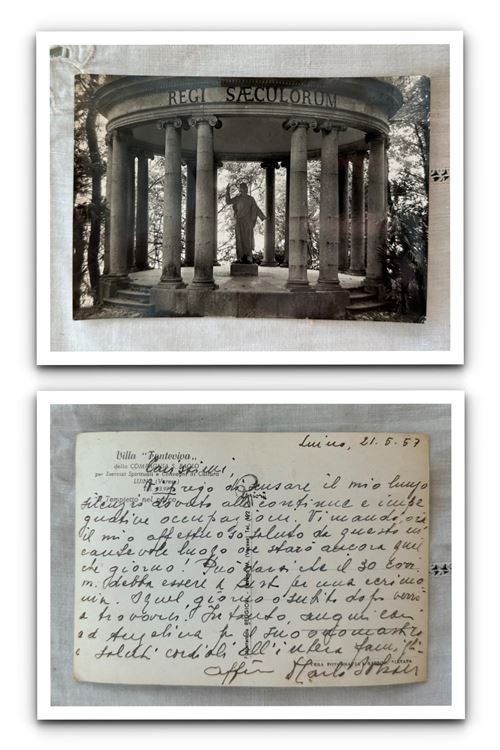 REGI SÆCULORUM
Villa "Fonteviva"
della COMPAGNIA S. PAOLO
per Esercizi Spirituali e Convegni di Cultura
LUINO (Varese)
Tempietto nel parco
Luino, 21.5.57
Carissimi,
Vi prego di scusare il mio lungo
silenzio dovuto alle continue e impe
gnative occupazioni. Vi mando, ora
il mio affettuoso saluto da questo in
cantevole luogo ove starò ancora qual
che giorno! Può darsi che il 30 corr.
m. debba essere a per una cerimo
nia. In quel giorno o subito dopo verrò
a trovarvi. Intanto, auguri cari
ad Angelina per il suo onomastico
e saluti cordiali all'intera famiglia.
aff.mo
VERA FOTOGRAFIA